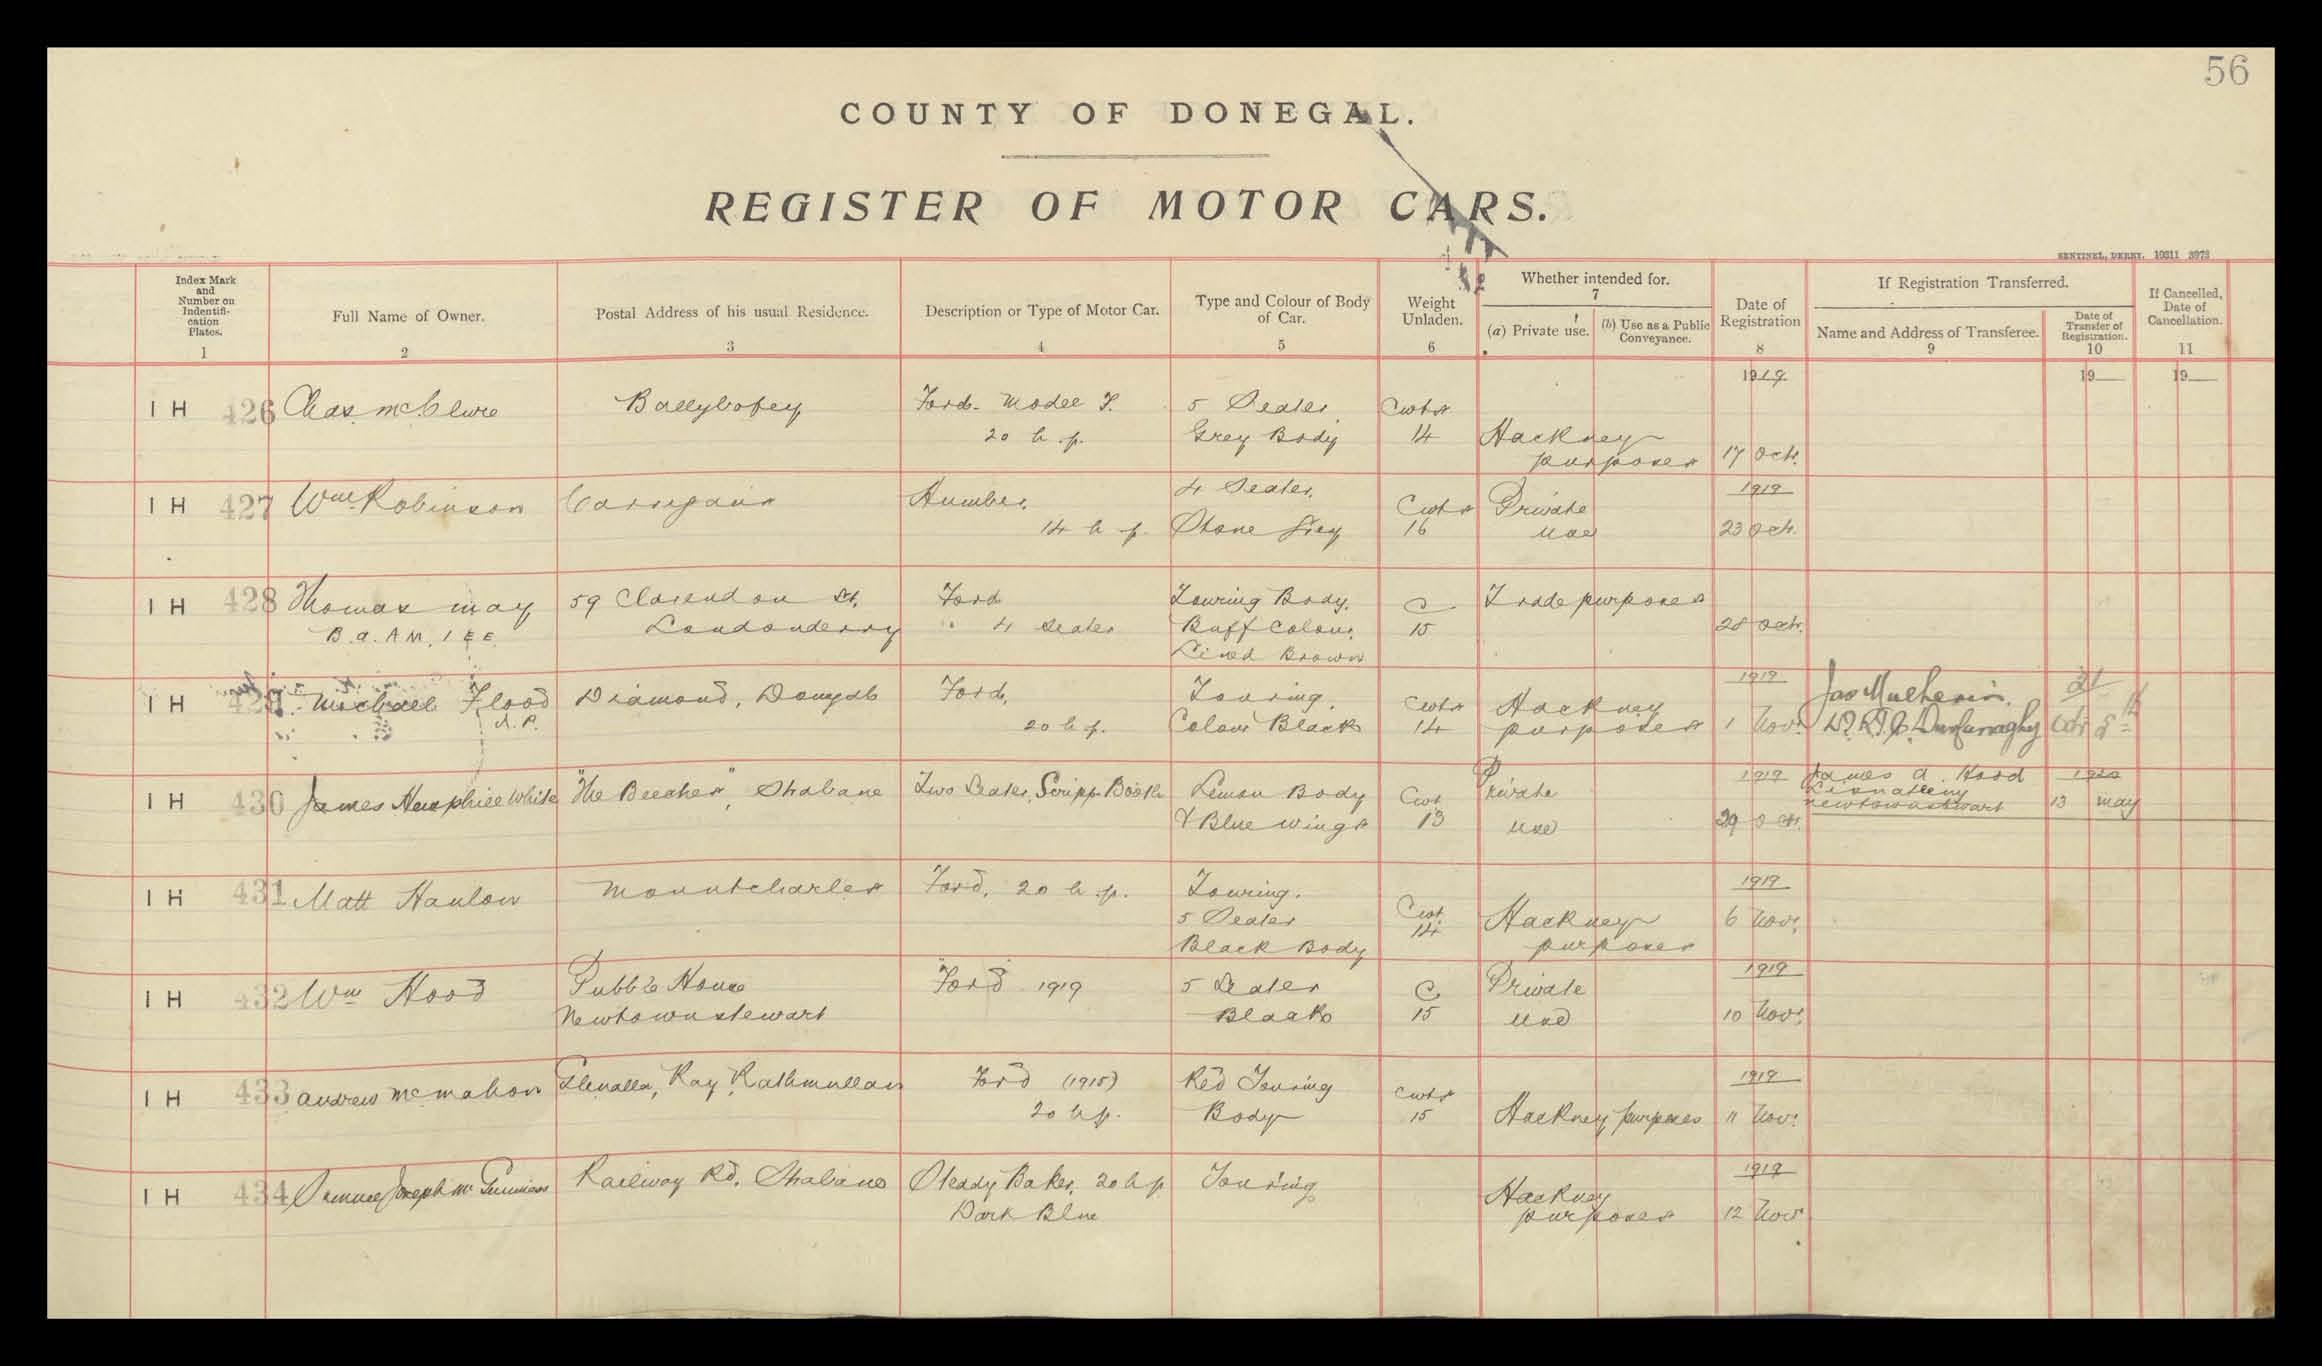 56
COUNTY OF DONEGAL.
REGISTER OF MOTOR CARS.
SENTINEL, DERRY. 10311 3973
Index Mark and Number on Indentifi- cation Plates. 1
Full Name of Owner. 2
Postal Address of his usual Residence. 3
Description or Type of Motor Car. 4
Type and Colour of Body of Car. 5
Weight Unladen. 6
Whether intended for. 7
(a) Private use.
(b) Use as a Public Conveyance.
Date of Registration 8
If Registration Transferred.
Name and Address of Transferee. 9
Date of Transfer of Registration. 10
If Cancelled, Date of Cancellation. 11
1919 19 19
I H 426 Chas. McClure Ballybofey Ford. Model T. 5 Seater Cwts
20 h.p. Grey Body 14 Hackney
purposes 17 Oct.
I H 427 Wm Robinson Carrigans Humber. 4 Seater. Cwts Private 1919
14 h.p. Stone Grey 16 use 23 Oct.
I H 428 Thomas May 59 Clarendon St. Ford Touring Body. C Trade purposes
B.A. A.M. I E E Londonderry " 4 Seater Buff Colour. 15 28 Oct.
Lined Brown
I H 429 Michael Flood Diamond, Donegal Ford, Touring. Cwts Hackney 1919 Jas Mulherin. 21
20 h.p. Colour Black 14 purposes 1 Nov. Oct 5th
I H 430 James Hemphill White "The Beeches", Strabane Two Seater, Scripp Booth Lemon Body Cwt Private 1919 James A. Hood 1920
& Blue Wings 13 use 29 Oct. Lisnatteny
Newtownstewart 13 May
I H 431 Matt Hanlon Mountcharles Ford, 20 h.p. Touring. 1919
5 Seater Cwt 14 Hackney 6 Nov.
Black Body purposes
I H 432 Wm Hood Pubble House Ford 1919 5 Seater C Private 1919
Newtownstewart Black 15 use 10 Nov.
I H 433 Andrew McMahon Glenalla, Ray, Rathmullan Ford (1915) Red Touring Cwts 1919
20 h.p. Body 15 Hackney purposes 11 Nov.
I H 434 Samuel Joseph McGuinness Railway Rd, Strabane Steady Baker, 20 h.p Touring Hackney 1919
Dark Blue purposes 12 Nov